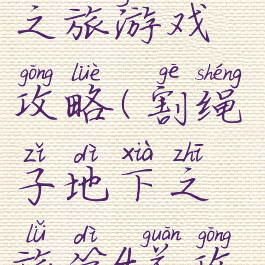 之旅游戏
gōng lüè gē shéng
攻略(割绳
zǐ dì xià zhī
子地下之
lǚ dì guān gōng
旅第4关攻